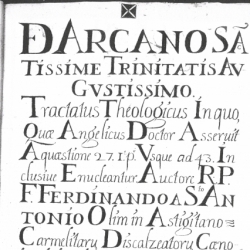 D ARCANO SĀ
TISSIME TRINITATIS AV
GVSTISSIMO.
Tractatus Theologicus In quo,
Quæ Angelicus Doctor Asseruit
A quæstione 27. 1. p. Vsque ad 43. In
clusive Enucleantur Auctore RP
F FERDINANDO A Sto AN
TONIO Olim in Astigitano
Carmelitarū Discalzeatorū Cano